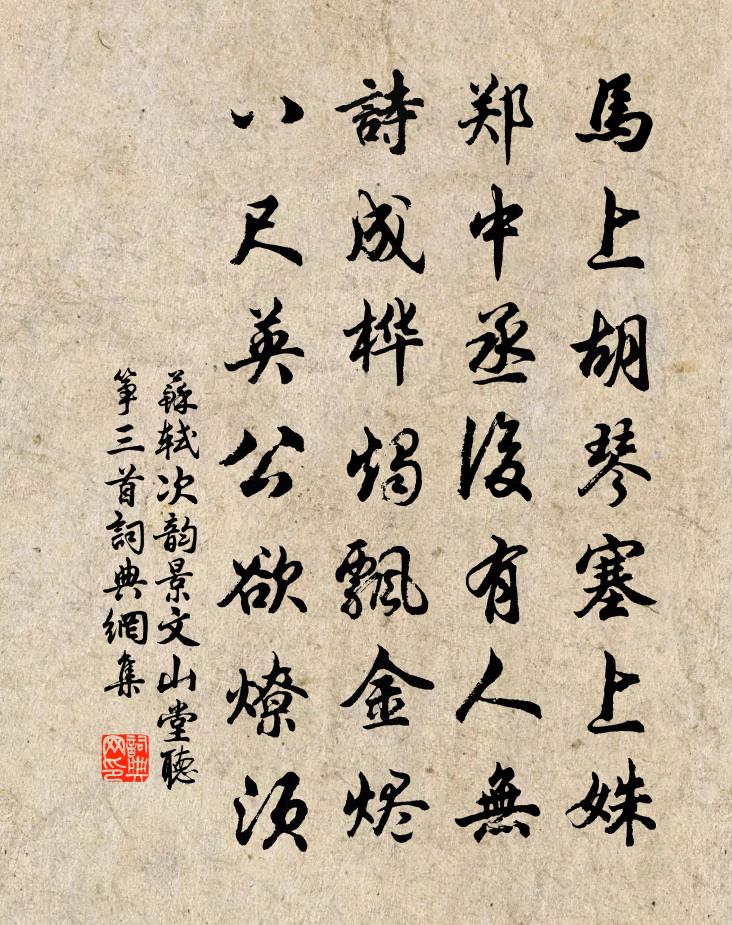 馬上胡琴塞上姝
郑中丞後有人無
詩成桦燭飄金烬
八尺英公欲燎须
蘇轼次韵景文山堂聽
筝三首詞典網集
詞典网印